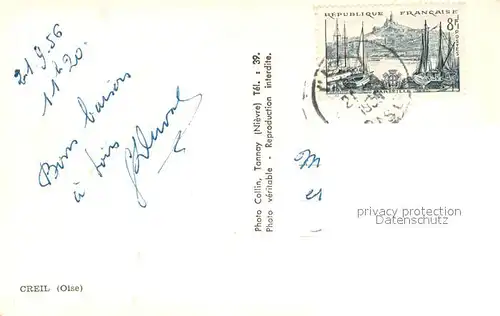 21.9.56
11h20.
Bons baisers
à tous
CREIL (Oise)
Photo Collin, Tannay (Nièvre) Tél. : 39.
Photo véritable - Reproduction interdite.
RÉPUBLIQUE FRANÇAISE
8F
POSTES
MARSEILLE
M
et
privacy protection